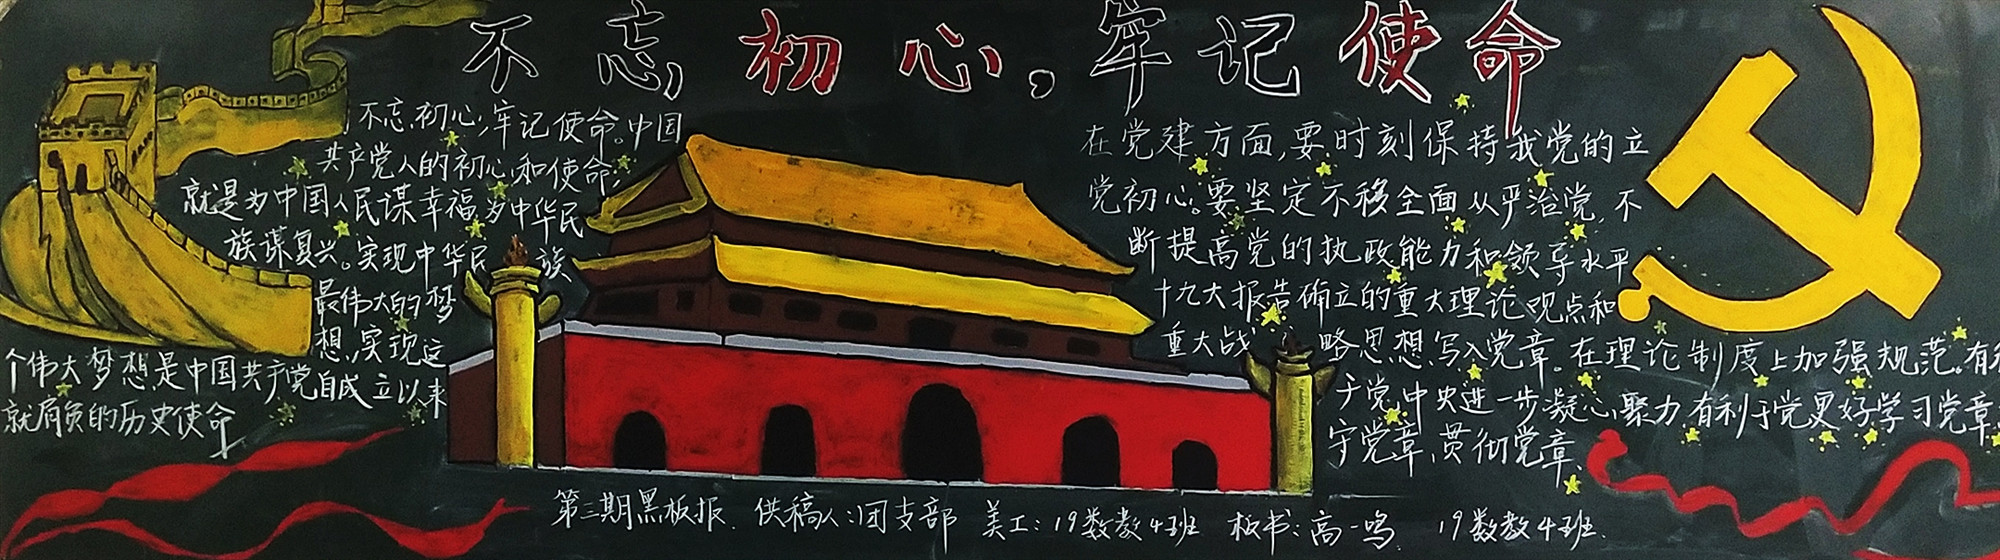 不忘初心。牢记使命
不忘初心,牢记使命。中国
共产党人的初心和使命,
就是为中国人民谋幸福,为中华民
族谋复兴。实现中华民族
最伟大的梦
想,实现这
个伟大梦想是中国共产党自成立以来
就肩负的历史使命
在党建方面,要时刻保持我党的立
党初心。要坚定不移全面从严治党,不
断提高党的执政能力和领导水平
十九大报告确立的重大理论观点和
重大战略思想写入党章。在理论制度上加强规范。有利
于党中央进一步凝心聚力,有利于党更好学习党章,
守党章,贯彻党章
第三期黑板报. 供稿人:团支部 美工:19数教4班 板书:高一鸣. 19数教4班.